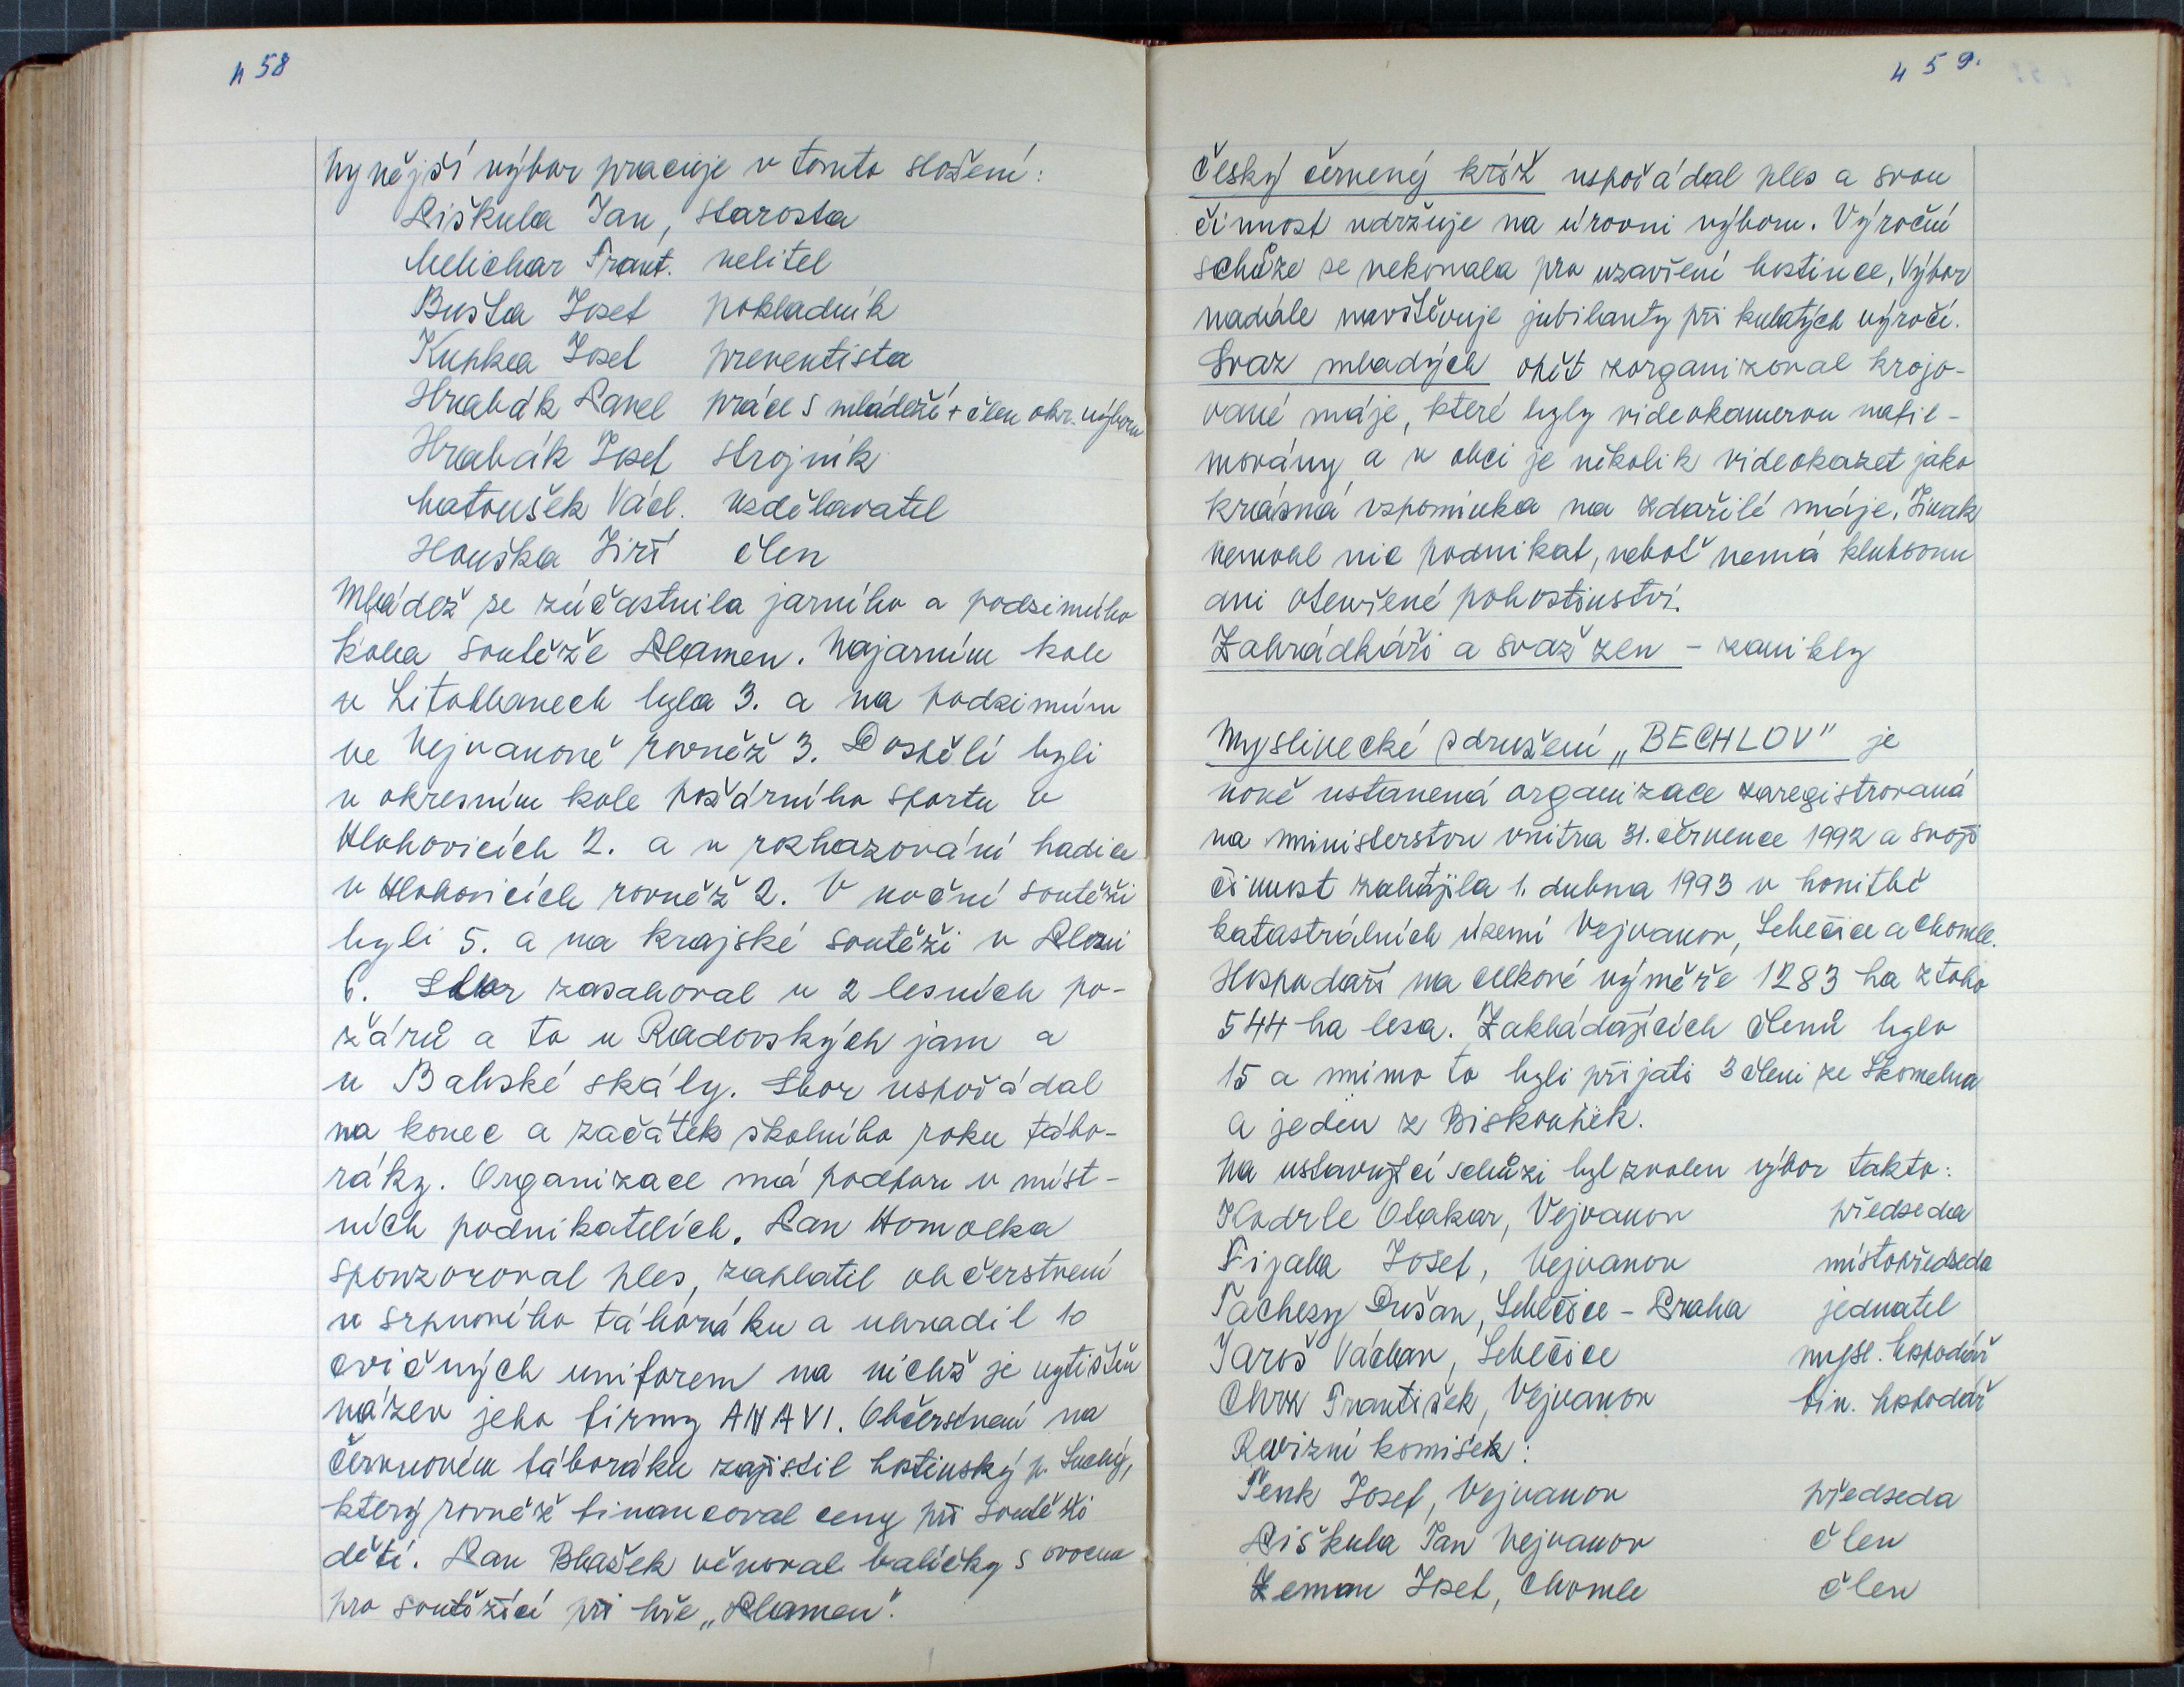 458
Nynější výbor pracuje v tomto složení:
Piškula Jan, starosta
Melichar Frant. velitel
Bušta Josef pokladník
Kupka Josef preventista
Hrabák Pavel práce s mládeží + člen okr. výboru
Hrabák Josef strojník
Matoušek Václ. vzdělavatel
Houška Jiří člen
Mládež se zúčastnila jarního a podzimního
kola soutěže Plamen. Na jarním kole
v Litohlavech byla 3. a na podzimním
ve Vejvanově rovněž 3. Dospělí byli
v okresním kole požárního sportu v
Hlohovicích 2. a v rozhazování hadice
v Hlohovicích rovněž 2. V noční soutěži
byli 5. a na krajské soutěži v Plzni
6. Sbor zasahoval u 2 lesních po-
žárů a to u Radovských jam a
u Babské skály. Sbor uspořádal
na konec a začátek školního roku tábo-
ráky. Organizace má podporu v míst-
ních podnikatelích. Pan Homolka
sponzoroval ples, zaplatil občerstvení
u srpnového táboráku a uhradil 10
cvičných uniforem na nichž je vytištěn
název jeho firmy ANAVI. Občerstvení na
červnovém táboráku zajistil hostinský p. Suchý,
který rovněž financoval ceny při soutěži
dětí. Pan Blašek věnoval balíčky s ovocem
pro soutěžící při hře „Plamen".
459.
Český červený kříž uspořádal ples a svou
činnost udržuje na úrovni výboru. Výroční
schůze se nekonala pro uzavření hostince. Výbor
nadále navštěvuje jubilanty při kulatých výročí.
Svaz mladých opět zorganizoval krojo-
vané máje, které byly videokamerou nafil-
movány a v obci je několik videokazet jako
krásná vzpomínka na zdařilé máje. Jinak
nemohl nic podnikat, neboť nemá klubovnu
ani otevřené pohostinství.
Zahrádkáři a svaz žen - zanikly
Myslivecké sdružení „BECHLOV" je
nově ustanená organizace zaregistrovaná
na ministerstvu vnitra 31. července 1992 a svoji
činnost zahájila 1. dubna 1993 v honitbě
katastrálních území Vejvanov, Lhotice a Chomle.
Hospodaří na celkové výměře 1283 ha z toho
544 ha lesa. Zakládajících členů bylo
15 a mimo to byli přijati 3 členi ze Skomelna
a jeden z Biskoupek.
Na ustavující schůzi byl zvolen výbor takto:
Kodrle Otakar, Vejvanov předseda
Fijala Josef, Vejvanov místopředseda
Tachezy Dušan, - Praha jednatel
Jaroš Václav, mysl. hospodář
František, Vejvanov fin. hospodář
Revizní komisěk:
Penk Josef, Vejvanov předseda
Piškula Jan Vejvanov člen
Zeman Josef, Chomle člen